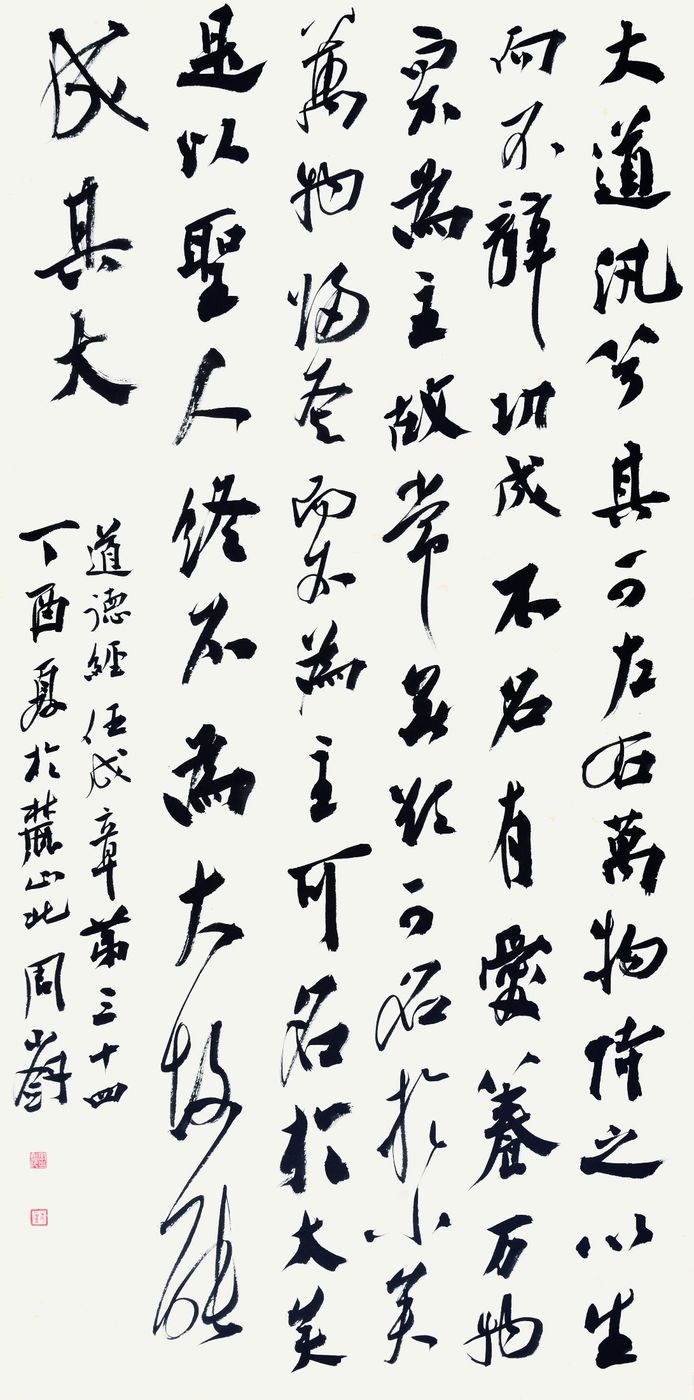 大道汎兮其可左右萬物恃之以生
而不辭功成不名有愛養万物
而不為主故常無欲可名於小矣
萬物歸焉而不為主可名於大矣
是以聖人終不為大故能
成其大
道德經任成章第三十四
丁酉夏於麓山北周